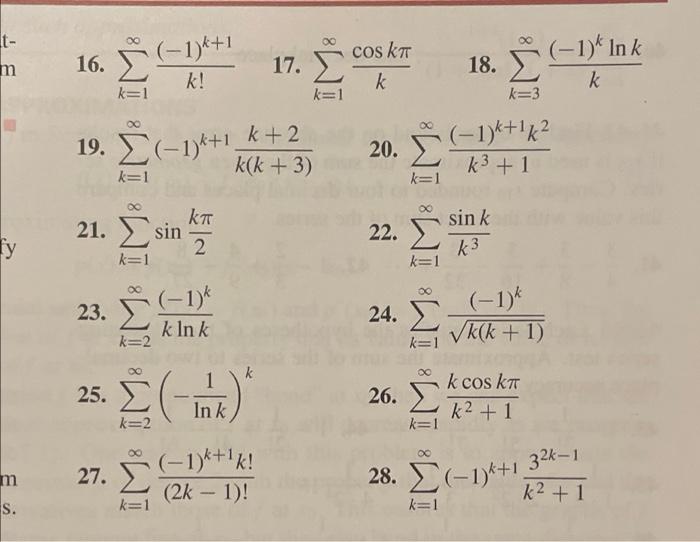 t-
m
16. \sum_{k=1}^{\infty} \frac{(-1)^{k+1}}{k!} 17. \sum_{k=1}^{\infty} \frac{\cos k\pi}{k} 18. \sum_{k=3}^{\infty} \frac{(-1)^k \ln k}{k}
19. \sum_{k=1}^{\infty} (-1)^{k+1} \frac{k+2}{k(k+3)} 20. \sum_{k=1}^{\infty} \frac{(-1)^{k+1}k^2}{k^3+1}
21. \sum_{k=1}^{\infty} \sin \frac{k\pi}{2} 22. \sum_{k=1}^{\infty} \frac{\sin k}{k^3}
fy
23. \sum_{k=2}^{\infty} \frac{(-1)^k}{k \ln k} 24. \sum_{k=1}^{\infty} \frac{(-1)^k}{\sqrt{k(k+1)}}
25. \sum_{k=2}^{\infty} \left(-\frac{1}{\ln k}\right)^k 26. \sum_{k=1}^{\infty} \frac{k \cos k\pi}{k^2+1}
m 27. \sum_{k=1}^{\infty} \frac{(-1)^{k+1}k!}{(2k-1)!} 28. \sum_{k=1}^{\infty} (-1)^{k+1} \frac{3^{2k-1}}{k^2+1}
s.